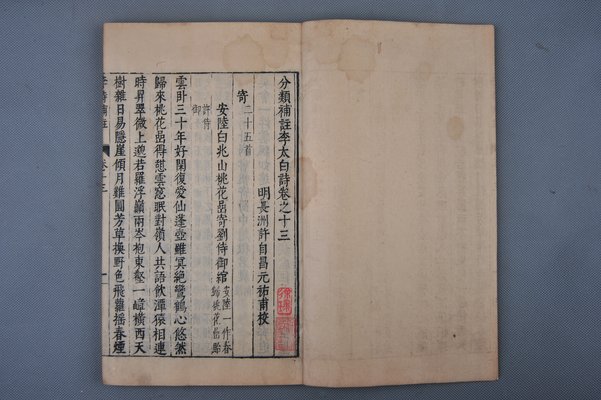 分類補註李太白詩卷之十三
明長洲許自昌元祐甫校
寄 二十五首
安陸白兆山桃花嵒寄劉侍御綰 安陸一作春
歸桃花嵒貽
許侍
御
雲卧三十年好閑復愛仙蓬壺雖冥絶鸞鶴心悠然
歸來桃花嵒得憇雲窓眠對嶺人共語飲潭猿相連
時昇翠微上邈若羅浮巔兩岑抱東壑一嶂橫西天
樹雜日易隱崖傾月難圓芳草換野色飛蘿摇春煙
卷十三